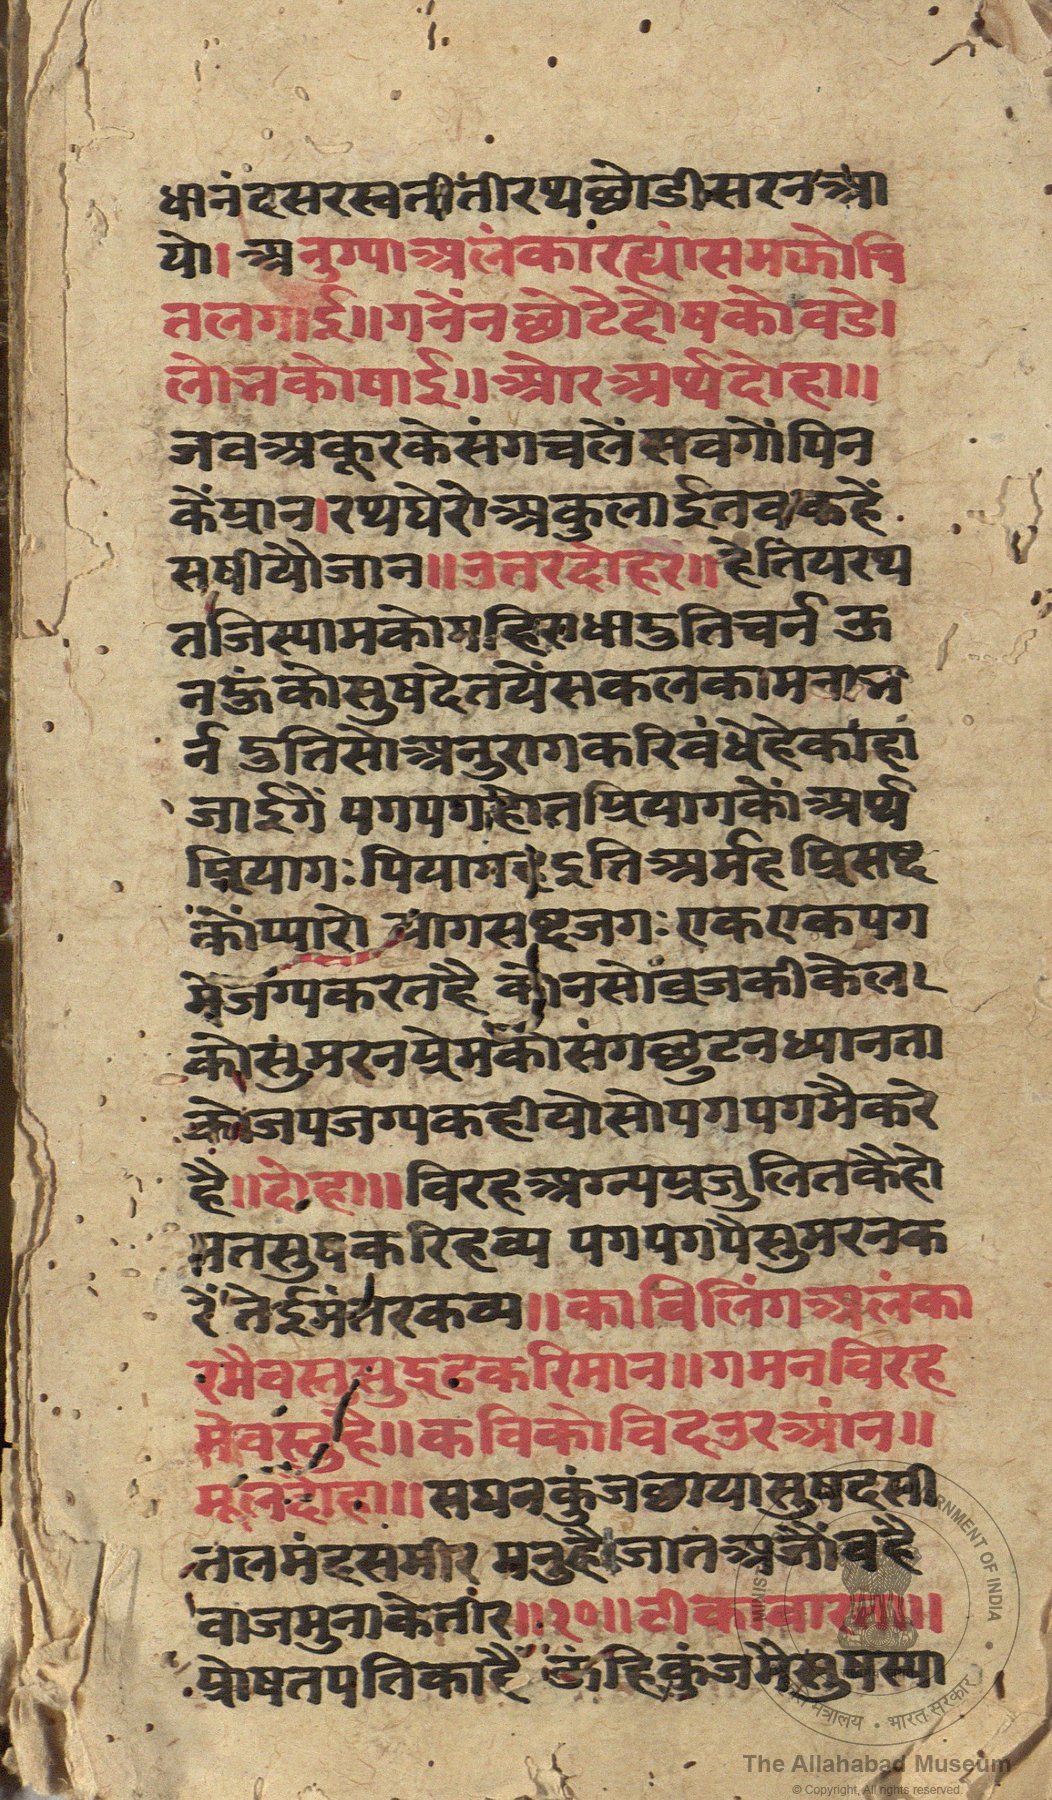 धीनंदसरस्वतीतीरथछोडीसरनआ
यो। अनुग्पाअलंकारह्यांसमकोचि
तलगाई॥गनेंनछोटेदोषकोवडे।
लोनकोषाई॥ओरअर्थदोहा॥
जवअकूरकेसंगचलेंसवगोंपिन
केंप्रान।रथघेरोअकुलाईतवकहें
सषीयौजान॥उतरदोहर॥हेतियरथ
तजिस्यामको दुतिचर्न ऊ
नहूंकोसुषदेतयेंसकलकामना
र्न दुतिसोअनुरागकरिवंधेहेकांहां
जाईगें पगपगहोतप्रियागकोंअर्थ
प्रियागः दुतिअर्मह
कोंप्यारो जगः एकएकपग
मेंजग्पकरतहै कोनसोंव्रजकीकेल
कोसुंमरनप्रेमकोसंगछुटनध्यानता
कोजपजग्पकहीयोसोपगपगमैकरे
है॥दोहा॥विरहअग्न्यप्रजुलितकैहो
मतसुषकरिहव्य पगपगपैसुमरनक
रें तेईमंतरकव्य॥काविलिंगअलंका
रमैवस्तुसुद्रढकरिमान॥गमनविरह
मेवस्तुहे॥कविकोविदउरआंन॥
मूलदोहा॥सघनकुंजछायासुषदसी
तलमंदसमीर मनुहैजातअजोंवहै
वाजमुनाकेतीर॥२०॥टीकावारता॥
प्रोषतपतिकाहै ऊहिकुंजमैसुषस्या
The Allahabad Museum
© Copyright, All rights reserved.